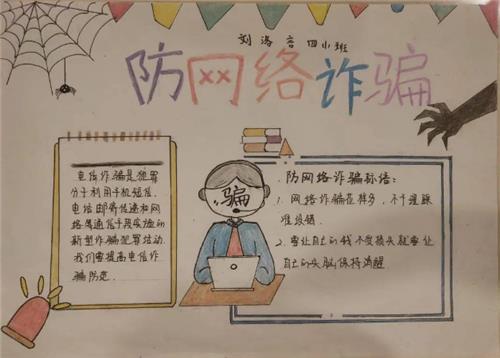 刘洛言 四小班
防网络诈骗
电信诈骗是犯罪
分子利用手机短信,
电话邮寄传递和网
络等通信手段实施的
新型诈骗犯罪活动.
我们要提高电信诈
骗防范.
骗
防网络诈骗标语:
1. 网络诈骗花样多, 不予理睬
准没错.
2. 要让自己的钱不受损失就要让
自己的头脑保持清醒